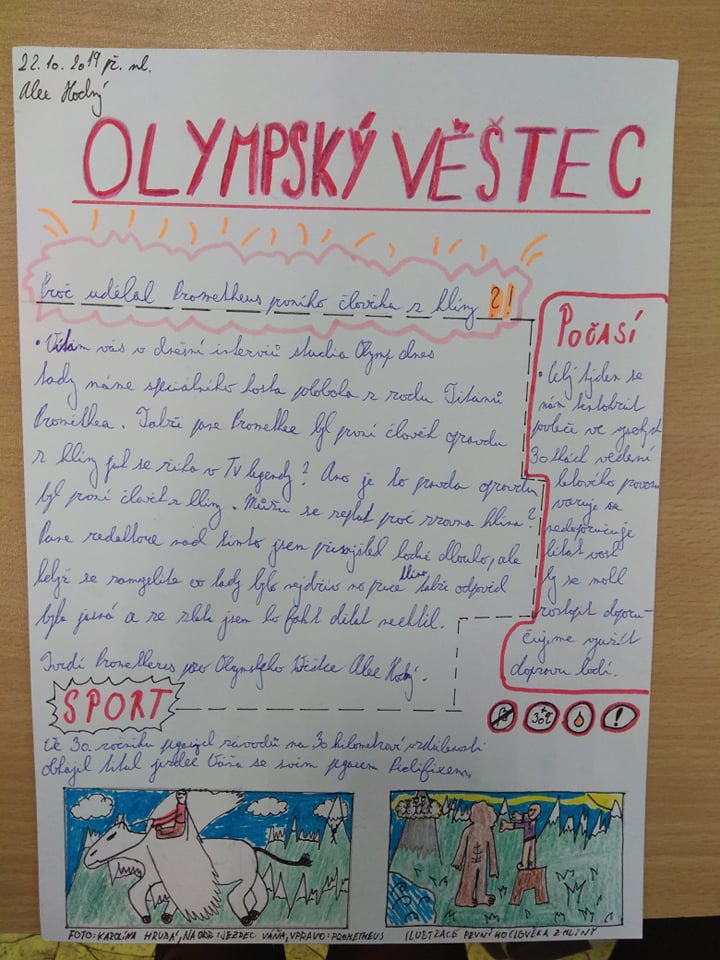 22.10.2019 př. nl.
Alec Hodný
OLYMPSKÝ VĚŠTEC
Proč udělal Prometheus prvního člověka z hlíny ?!
• Vítám vás v dnešní interviů studia Olymp dnes
tady máme speciálního hosta poloboha z rodu Titánů
Prométhea. Takže pane Promethee byl první člověk opravdu
z hlíny jak se říká v TV legendy? Ano je to pravda opravdu
byl první člověk z hlíny. Můžu se zeptat proč zrovna hlína?
Pane redaktore nad tímto jsem přemýšlel hodně dlouho, ale
když se zamyslíte co tady bylo nejdřív no přece hlína takže odpověď
byla jasná a ze zlata jsem ho fakt dělat nechtěl.
Tvrdí Prometheus pro Olympského Věštce Alec Hodný.
POČASÍ
• Celý týden se
nám
potečí ve
30 vedení
letového provozu
varuje se
nedoporučuje
lítat vosk
by se mohl
roztopit doporu-
čujeme využít
dopravu lodí.
30°C
!
SPORT
Ve 30. ročníku pegasích závodů na 30 kilometrové vzdálenosti
obhájil titul jezdec Váňa se svým pegasem
FOTO: KAROLÍNA HRUBÁ, NA OBR: JEZDEC VÁŇA, VPRAVO: PROMETHEUS
ILUSTRACE PRVNÍHO ČLOVĚKA Z HLÍNY